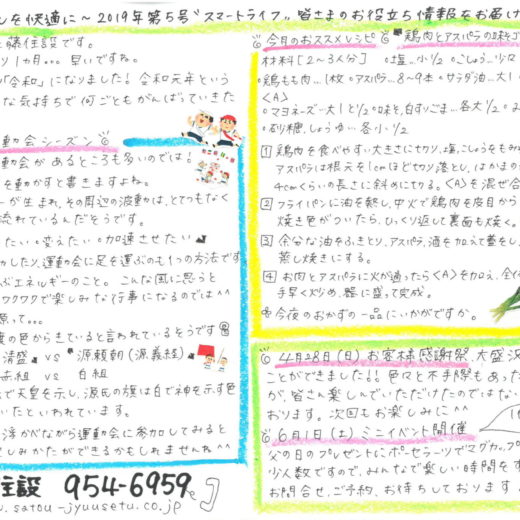 しを快適に～2019年第5号"スマートライフ"皆さまのお役立ち情報をお届け
藤住設です。
り1ヵ月... 早いですね。
「令和」になりました!令和元年という
な気持ちで何ごともがんばっていきた
動会シーズン
動会があるところも多いのでは!
を動かすと書きますよね。
ーが生まれ、その周辺の波動は、とてつもなく
流れているんだそうです。
たい・変えたい・加速させたい
かしたり、運動会に足を運ぶのも1つの方法です
んどエネルギーのこと。こんな風に思うと
ワクワクで楽しみな行事になるのでは^^
源って...
の色からきていると言われているそうです
清盛 vs 源頼朝(源義経)
赤組 vs 白組
で天皇を示し、源氏の旗は白で神を示す色
いたといわれています。
浮かべながら運動会に参加してみると
しみかたができるかもしれませんね^^
住設 954-6959
w.satou-jyuusetu.co.jp
今月のおススメレシピ 鶏肉とアスパラの味
材料[2～3人分] 塩...小1/2 こしょう...少
鶏もも肉...1枚 アスパラ...8～9本 サラダ油...大1
<A>
マヨネーズ...大1と1/2 味そ、白すりごま...各大1/2
砂糖、しょうゆ...各小1/2
1 鶏肉を食べやすい大きさに切り、塩、こしょうをもみ
アスパラは根元を1cmほど切り落とし、はかまの
4cmくらいの長さに斜めに切る。<A>を混ぜ合
2 フライパンに油を熱し、中火で鶏肉を皮目から
焼き色がついたら、ひっくり返して裏面も焼く。
3 余分な油をふきとり、アスパラ、酒を加えて蓋をし、
蒸し焼きにする。
4 お肉とアスパラに火が通ったら<A>を加え、全
手早く炒め、器に盛って完成。
今夜のおかずの一品にいかがですか。
4月28日(日)お客様感謝祭、大盛況
ことができました!!色々と不手際もあった
が、皆さん楽しんでいただけたのではない
おります。次回もお楽しみに^^
6月1日(土)ミニイベント開催
父の日のプレゼントにポーセラーツでマグカップ
少人数ですので、みんなで楽しい時間を
お問合せ、ご予約、お待ちしております。